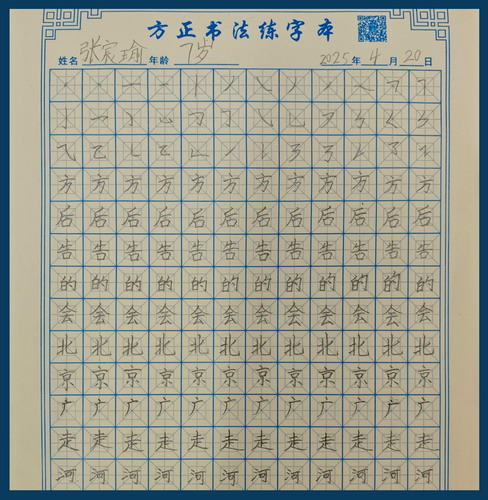 方正书法练字本
姓名 张宸瑜 年龄 7岁 2025年4月20日
方方方方方方方方方方方方
后后后后后后后后后后后后
告告告告告告告告告告告告
的的的的的的的的的的的的
会会会会会会会会会会会会
北北北北北北北北北北北北
京京京京京京京京京京京京
广广广广广广广广广广广广
走走走走走走走走走走走走
河河河河河河河河河河河河